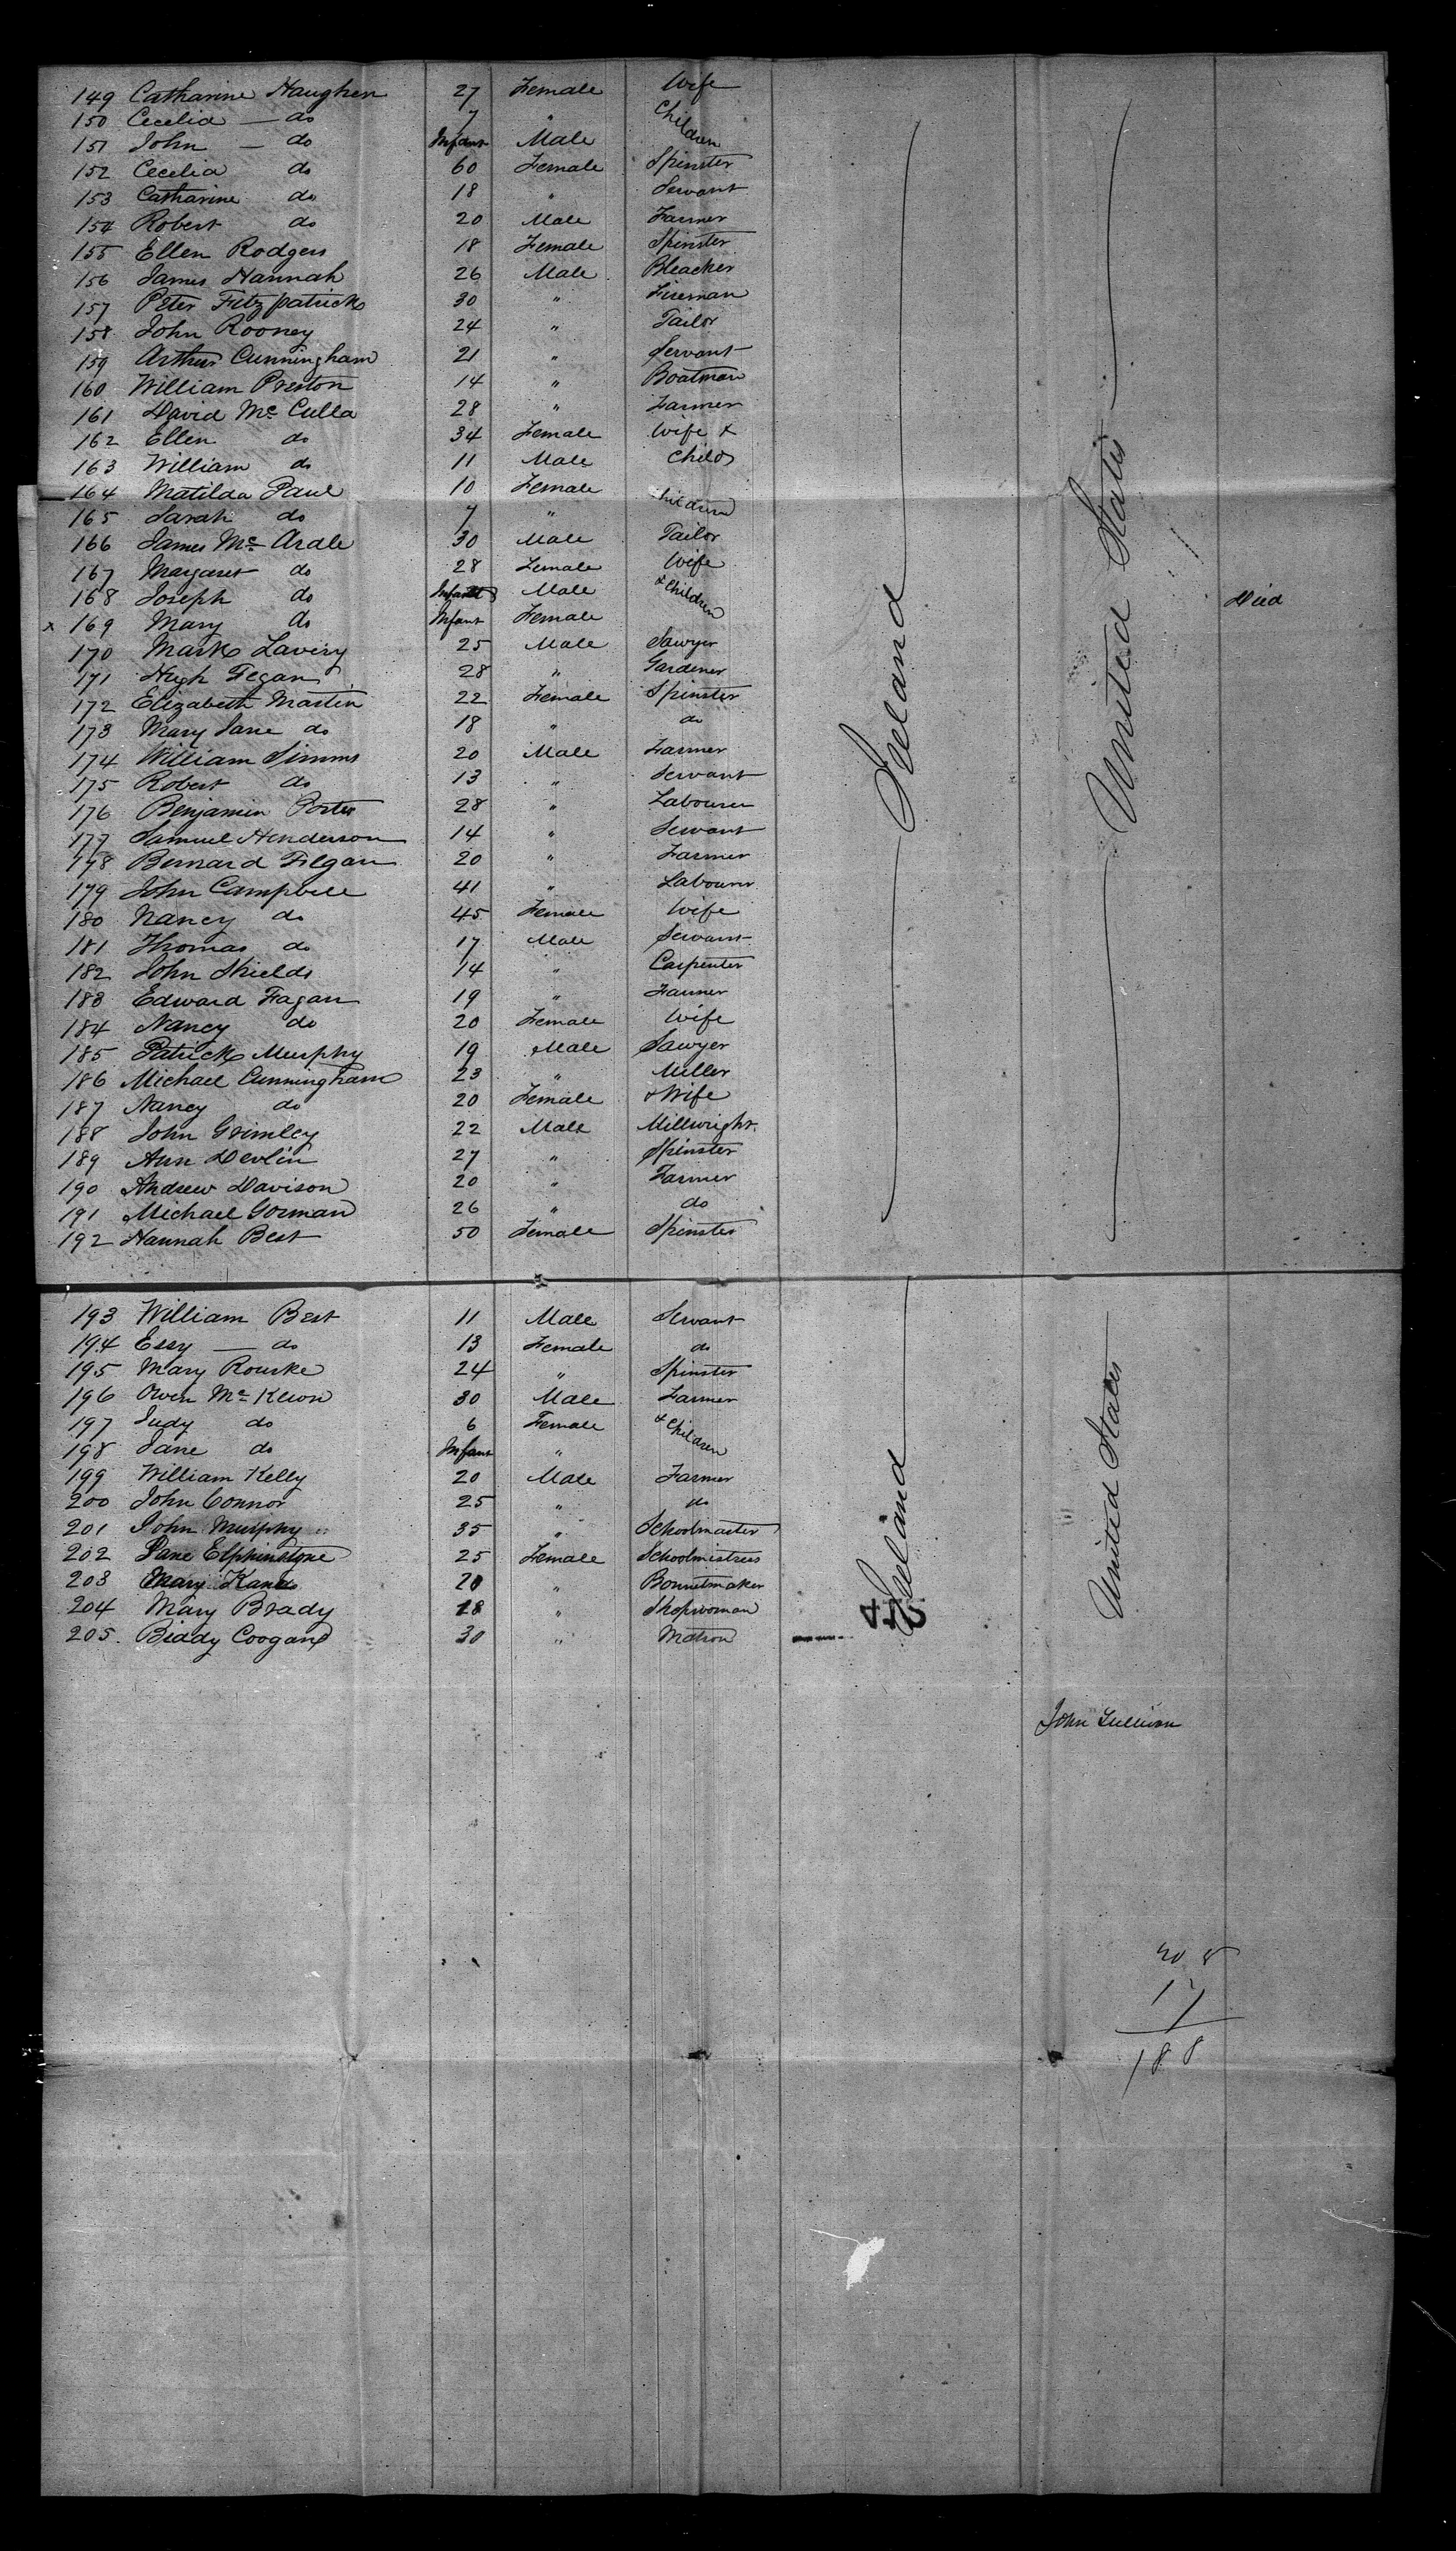 149 Catharine Haughen 27 Female Wife
150 Cecelia — do 7 " Children
151 John — do Infant Male
152 Cecelia do 60 Female Spinster
153 Catharine do 18 " Servant
154 Robert do 20 Male Farmer
155 Ellen Rodgers 18 Female Spinster
156 James Hannah 26 Male Bleacher
157 Peter Fitzpatrick 30 " Fireman
158 John Rooney 24 " Tailor
159 Arthur Cunningham 21 " Servant
160 William Preston 14 " Boatman
161 David Mc Culla 28 " Farmer
162 Ellen do 34 Female Wife &
163 William do 11 Male Child
164 Matilda Paul 10 Female
165 Sarah do 7 " Children
166 James Mc Ardle 30 Male Tailor
167 Margaret do 28 Female Wife
168 Joseph do Infant Male & Children Died
x 169 Mary do Infant Female
170 Mark Lavery 25 Male Sawyer
171 Hugh Fegan 28 " Gardener
172 Elizabeth Martin 22 Female Spinster
173 Mary Jane do 18 " do
174 William Simms 20 Male Farmer
175 Robert do 13 " Servant
176 Benjamin Porter 28 " Labourer
177 Samuel Henderson 14 " Servant
178 Bernard Fegan 20 " Farmer
179 John Campbell 41 " Labourer
180 Nancy do 45 Female Wife
181 Thomas do 17 Male Servant
182 John Shields 14 " Carpenter
183 Edward Fagan 19 " Farmer
184 Nancy do 20 Female Wife
185 Patrick Murphy 19 Male Sawyer
186 Michael Cunningham 23 " Miller
187 Nancy do 20 Female & Wife
188 John Grimley 22 Male Millwright
189 Ann Devlin 27 " Spinster
190 Andrew Davison 20 " Farmer
191 Michael Gorman 26 " do
192 Hannah Best 50 Female Spinster
Ireland
United States
193 William Best 11 Male Servant
194 Essy — do 13 Female do
195 Mary Rourke 24 " Spinster
196 Owen Mc Keon 30 Male Farmer
197 Judy do 6 Female & Children
198 Jane do Infant "
199 William Kelly 20 Male Farmer
200 John Connor 25 " do
201 John Murphy 35 " Schoolmaster
202 Jane Elphinstone 25 Female Schoolmistress
203 Mary Kane 20 " Bonnetmaker
204 Mary Brady 28 " Shopwoman
205 Biddy Coogan 30 " Matron
Ireland
United States
John Sullivan
17
188